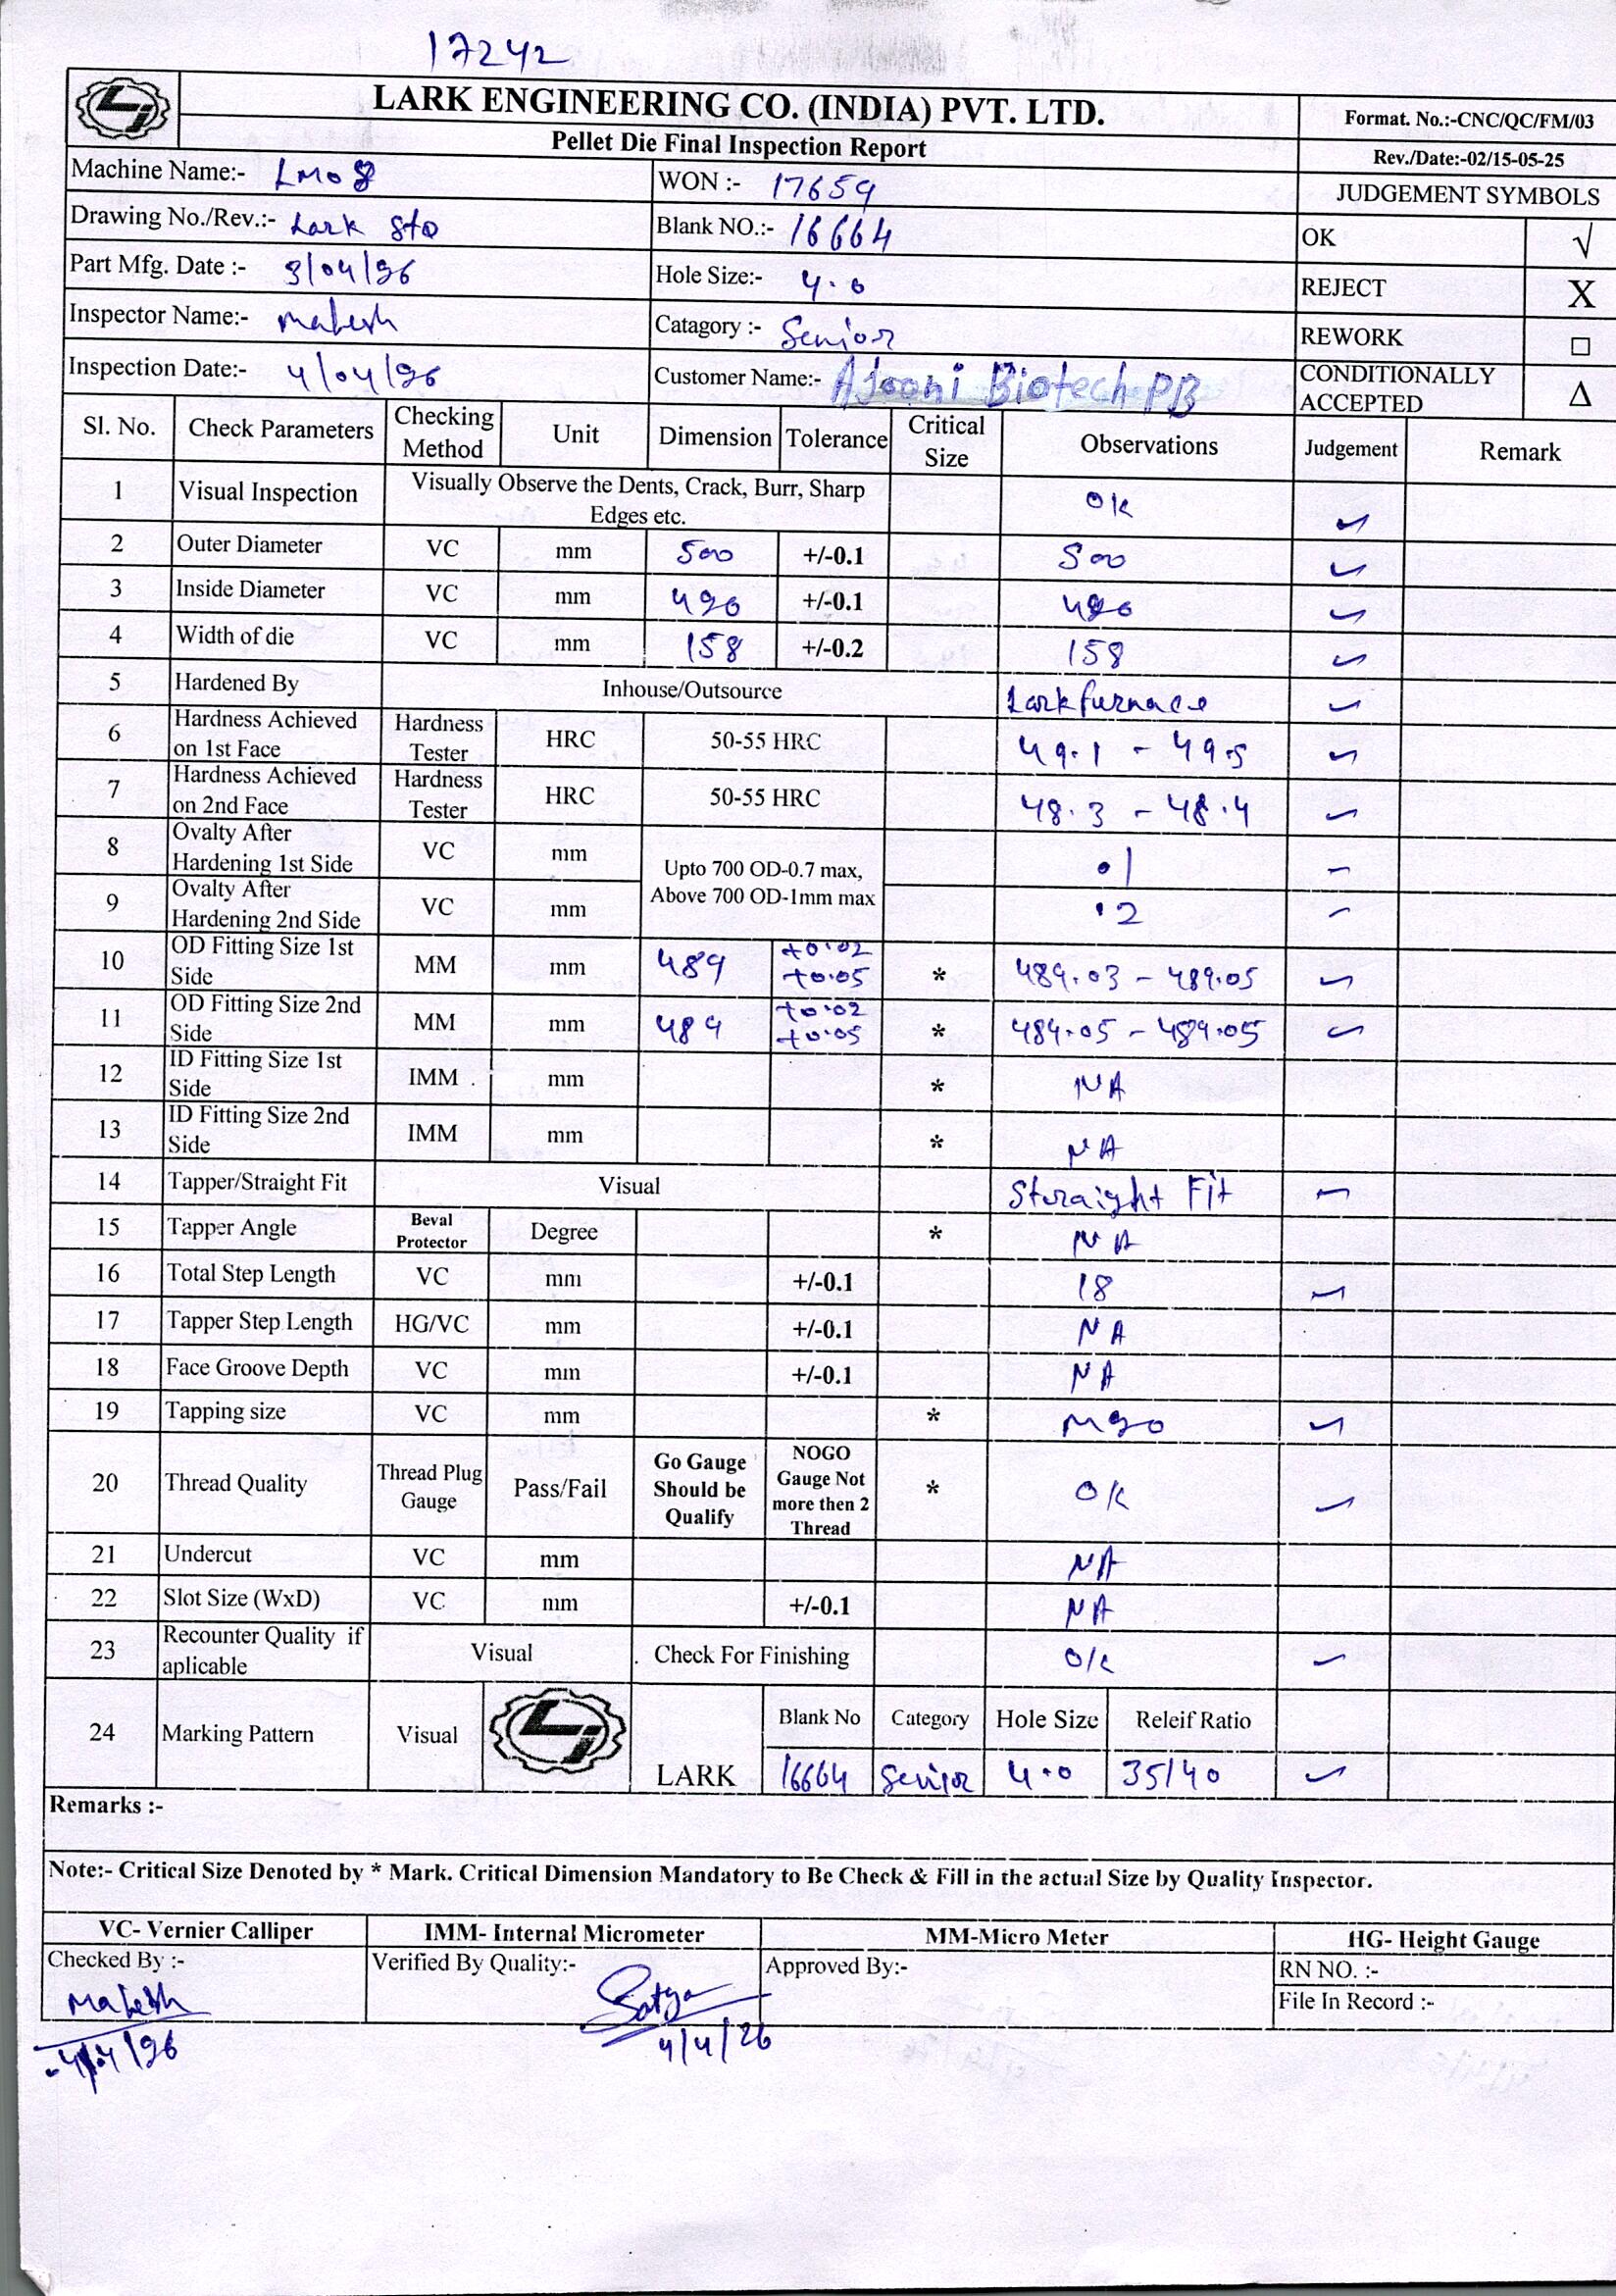 17242
LARK ENGINEERING CO. (INDIA) PVT. LTD.
Format. No.:-CNC/QC/FM/03
Pellet Die Final Inspection Report
Rev./Date:-02/15-05-25
Machine Name:- LM08 WON :- 17659 JUDGEMENT SYMBOLS
Drawing No./Rev.:- Lark Std Blank NO.:- 16664 OK √
Part Mfg. Date :- 3/04/26 Hole Size:- 4.0 REJECT X
Inspector Name:- Mahesh Catagory :- Senior REWORK □
Inspection Date:- 4/04/26 Customer Name:- AJooni Biotech PB CONDITIONALLY ACCEPTED Δ
Sl. No. Check Parameters Checking Method Unit Dimension Tolerance Critical Size Observations Judgement Remark
1 Visual Inspection Visually Observe the Dents, Crack, Burr, Sharp Edges etc. OK ✓
2 Outer Diameter VC mm 500 +/-0.1 500 ✓
3 Inside Diameter VC mm 420 +/-0.1 420 ✓
4 Width of die VC mm 158 +/-0.2 158 ✓
5 Hardened By Inhouse/Outsource Lark furnace ✓
6 Hardness Achieved on 1st Face Hardness Tester HRC 50-55 HRC 49.1 - 49.5 ✓
7 Hardness Achieved on 2nd Face Hardness Tester HRC 50-55 HRC 48.3 - 48.4 ✓
8 Ovalty After Hardening 1st Side VC mm Upto 700 OD-0.7 max, Above 700 OD-1mm max .1 ✓
9 Ovalty After Hardening 2nd Side VC mm .2 ✓
10 OD Fitting Size 1st Side MM mm 489 +0.02 +0.05 * 489.03 - 489.05 ✓
11 OD Fitting Size 2nd Side MM mm 489 +0.02 +0.05 * 489.05 - 489.05 ✓
12 ID Fitting Size 1st Side IMM mm * NA
13 ID Fitting Size 2nd Side IMM mm * NA
14 Tapper/Straight Fit Visual Straight Fit ✓
15 Tapper Angle Beval Protector Degree * NA
16 Total Step Length VC mm +/-0.1 18 ✓
17 Tapper Step Length HG/VC mm +/-0.1 NA
18 Face Groove Depth VC mm +/-0.1 NA
19 Tapping size VC mm * M20 ✓
20 Thread Quality Thread Plug Gauge Pass/Fail Go Gauge Should be Qualify NOGO Gauge Not more then 2 Thread * OK ✓
21 Undercut VC mm NA
22 Slot Size (WxD) VC mm +/-0.1 NA
23 Recounter Quality if aplicable Visual Check For Finishing O/K ✓
24 Marking Pattern Visual LARK Blank No Category Hole Size Releif Ratio
16664 Senior 4.0 35/40 ✓
Remarks :-
Note:- Critical Size Denoted by * Mark. Critical Dimension Mandatory to Be Check & Fill in the actual Size by Quality Inspector.
VC- Vernier Calliper IMM- Internal Micrometer MM-Micro Meter HG- Height Gauge
Checked By :- Verified By Quality:- Approved By:- RN NO. :-
Mahesh Satya File In Record :-
4/4/26 4/4/26